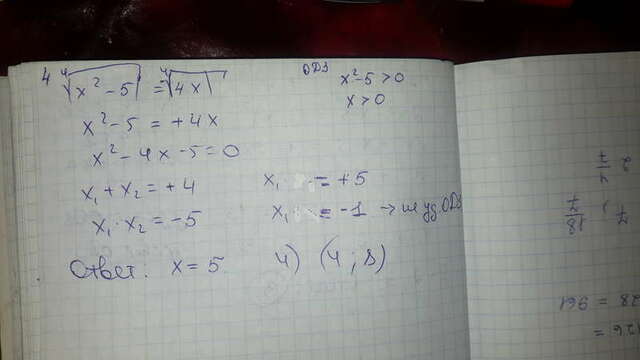 4 ∜x²-5 = ∜4x
ОДЗ
x²-5>0
x>0
x²-5 = +4x
x²-4x-5=0
x₁+x₂=+4
x₁·x₂=-5
x₁ = +5
x₁ = -1 → не уд. ОДЗ
Ответ: x=5
4) (4;8)
2
7
18
7
28 = 961
26 =